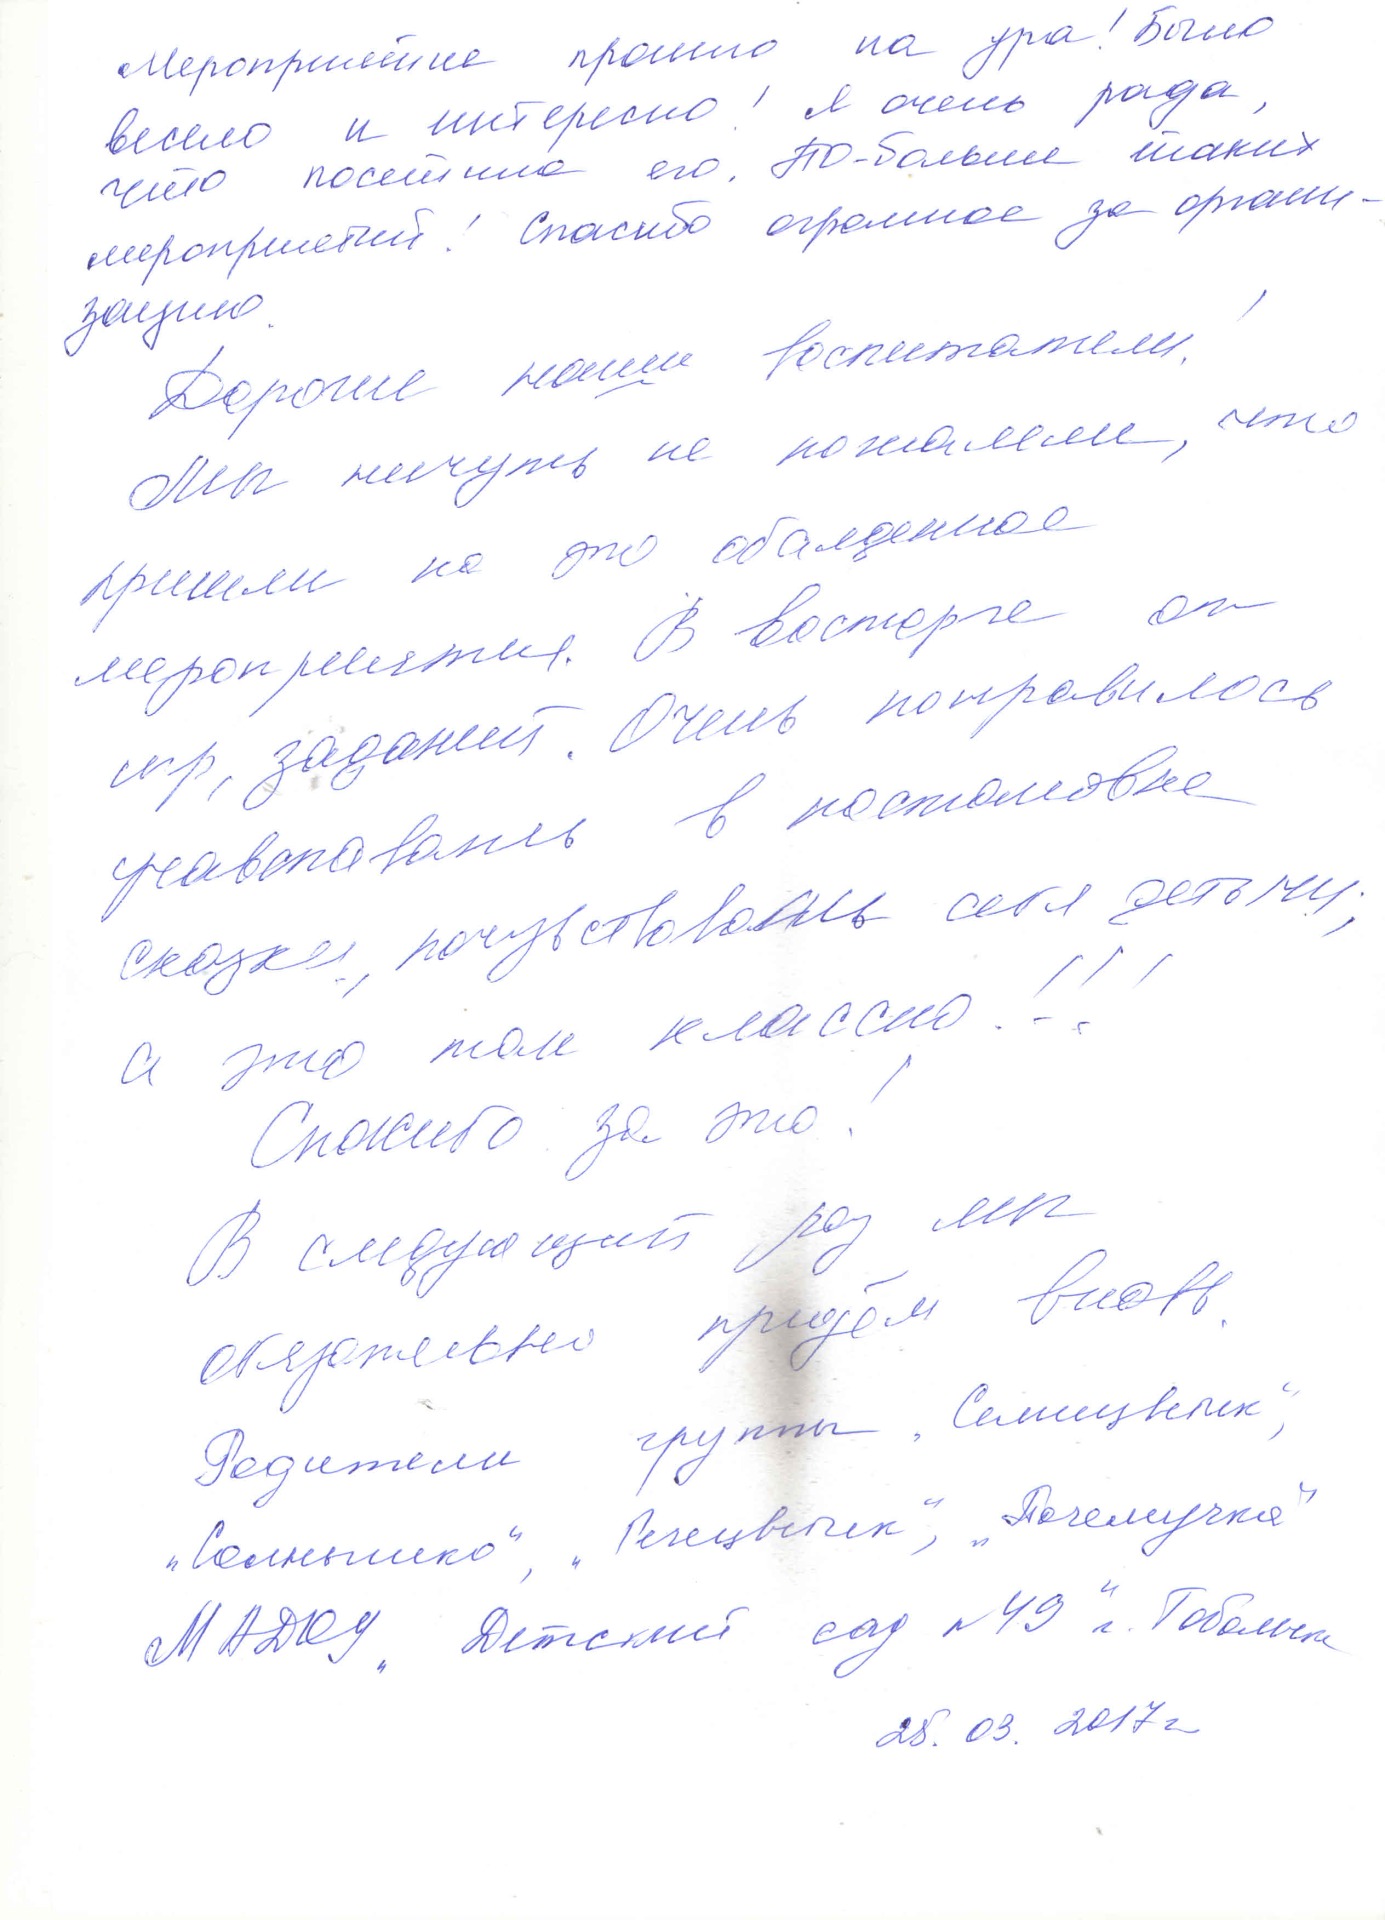 Мероприятие прошло на ура! Было
весело и интересно! Я очень рада,
что посетила его. По-больше таких
мероприятий! Спасибо огромное за органи-
зацию.
Дорогие наши воспитатели!
Мы ничуть не пожалели, что
пришли на это обалденное
мероприятие. В восторге от
игр, заданий. Очень понравилось
учавствовать в постановке
сказки, почувствовать себя детьми,
а это так классно!!!
Спасибо за это!
В следующий раз мы
обязательно придём вновь.
Родители группы „Семицветик“,
„Солнышко“, „Речецветик“, „Почемучка“
МАДОУ „Детский сад №49“ г. Тобольск
28. 03. 2017г